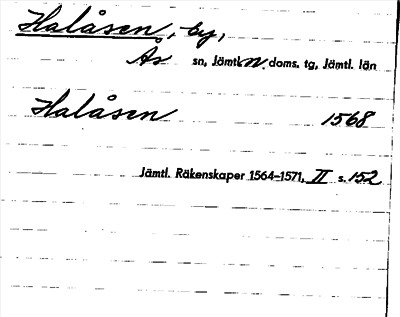 Halåsen, by,
Ås sn, Jämtl. n. doms. tg, Jämtl. län
Halåsen 1568
Jämtl. Räkenskaper 1564-1571, II s. 152